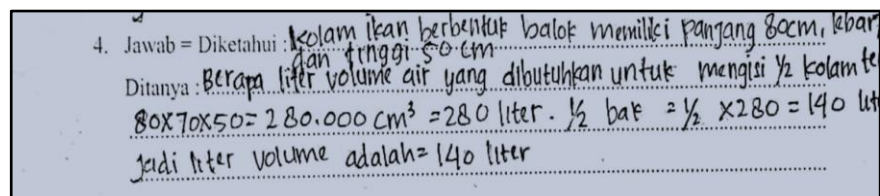 4. Jawab = Diketahui : Kolam ikan berbentuk balok memiliki panjang 80cm, lebar
dan tinggi 50 cm
Ditanya : Berapa liter volume air yang dibutuhkan untuk mengisi ½ kolam te
80x70x50= 280.000 cm³ =280 liter. ½ bak = ½ x280 = 140 lit
Jadi liter volume adalah= 140 liter